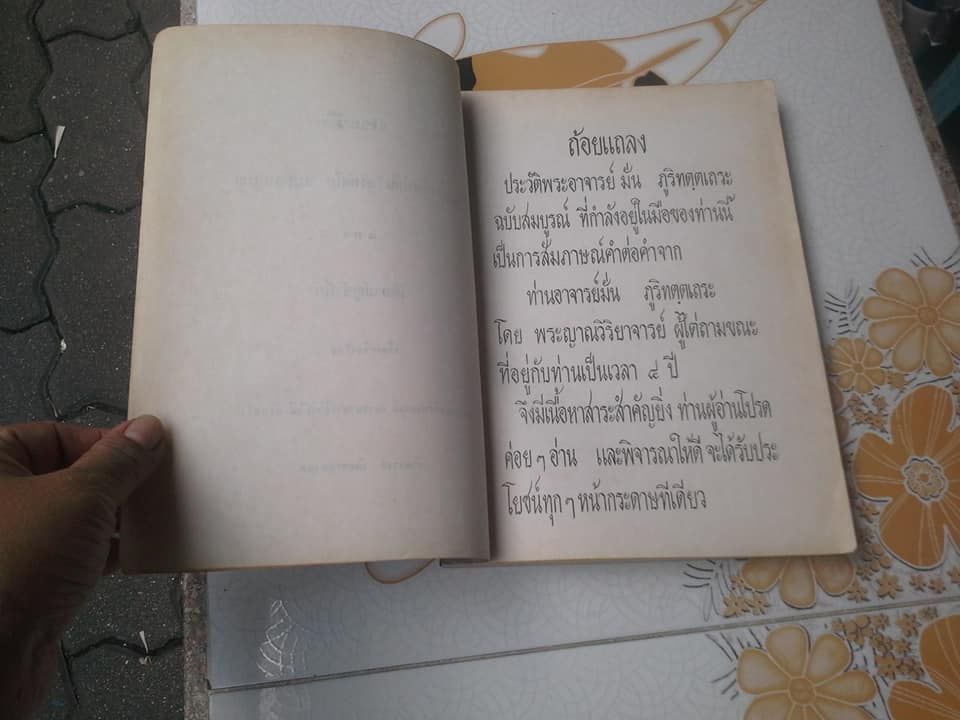 ถ้อยแถลง
ประวัติพระอาจารย์ มั่น ภูริทตฺตเถระ
ฉบับสมบูรณ์ ที่กำลังอยู่ในมือของท่านนี้
เป็นการสัมภาษณ์คำต่อคำจาก
ท่านอาจารย์มั่น ภูริทตฺตเถระ
โดย พระญาณวิริยาจารย์ ผู้ไต่ถามขณะ
ที่อยู่กับท่านเป็นเวลา ๔ ปี
จึงมีเนื้อหาสาระสำคัญยิ่ง ท่านผู้อ่านโปรด
ค่อย ๆ อ่าน และพิจารณาให้ดี จะได้รับประ
โยชน์ทุก ๆ หน้ากระดาษทีเดียว